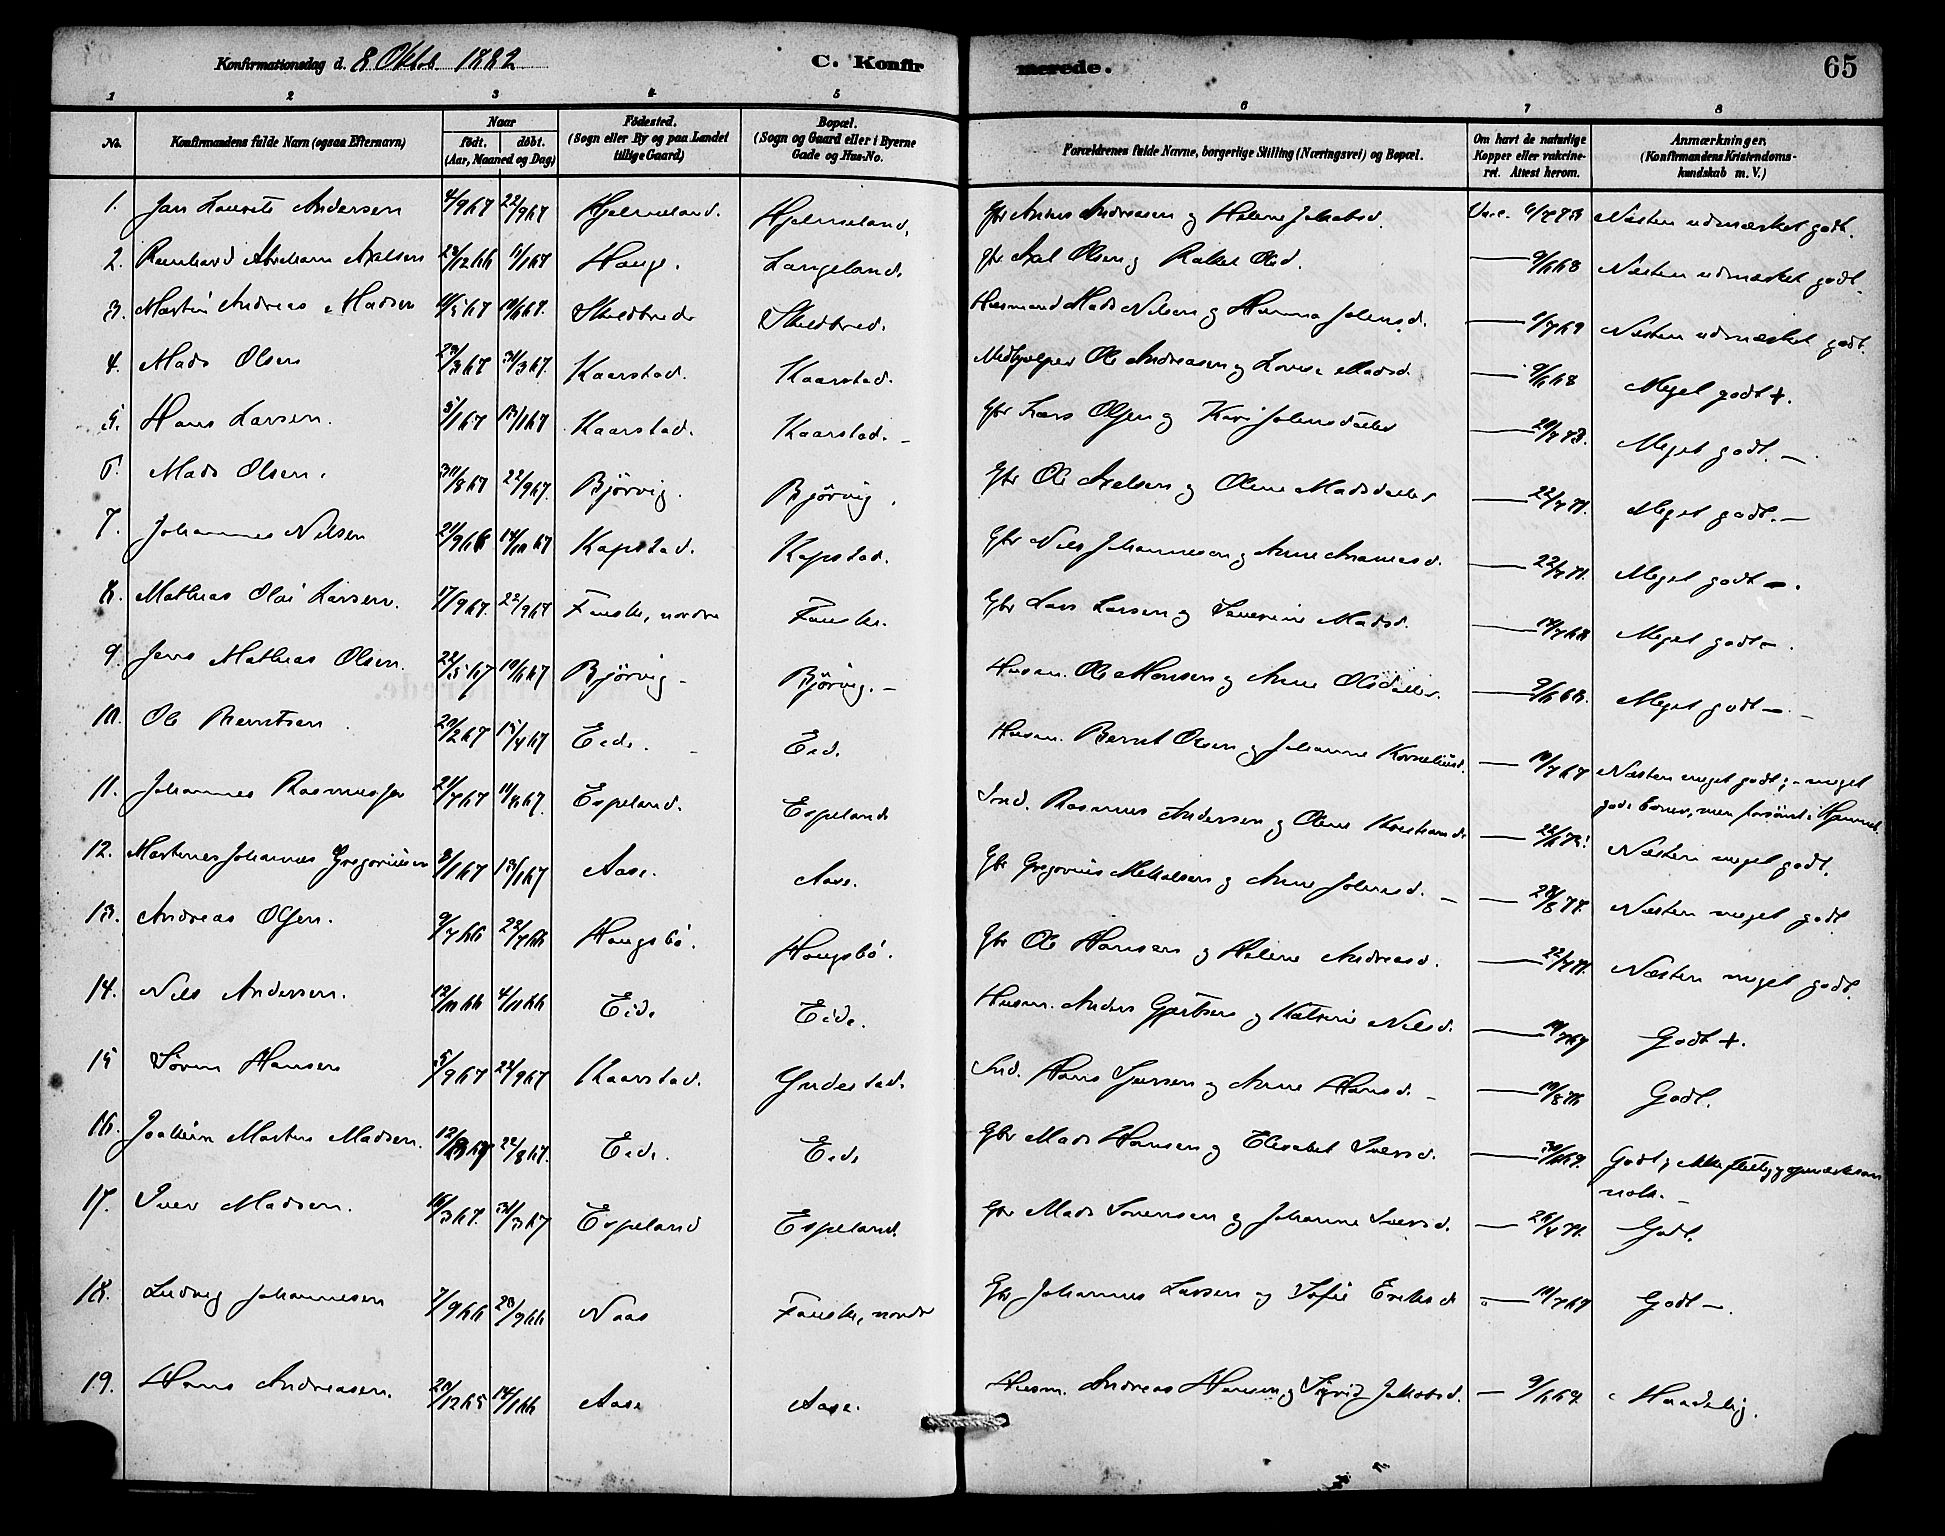 Konfirmationsdag d. 8 Oktob. 1882 C. Konfirmerede. 65
1 2 3 4 5 6 7 8
No. Konfirmandens fulde Navn (ogsaa Efternavn) Naar født. døbt. (Aar, Maaned og Dag) Fødested. (Sogn eller By og paa Landet tillige Gaard) Bopæl. (Sogn og Gaard eller i Byerne Gade og Hus-No. Forældrenes fulde Navne, borgerlige Stilling (Næringsvei) og Bopæl. Om havt de naturlige Kopper eller vakcineret. Attest herom. Anmærkninger. (Konfirmandens Kristendomskundskab m. V.)
1. Jan Laurits Andersen 4/9 67 22/9 67 Hjelmeland. Hjelmeland. Gbr Anders Andreasen og Helene Jakobsd. Vacc. 6/7 73 Næsten udmærket godt.
2. Reinhard Abraham Axelsen 24/12 66 6/1 67 Hauge. Langeland. Gbr Axel Olsen og Rakel Olsd. — 9/6 68 Næsten udmærket godt.
3. Martin Andreas Madsen 6/5 67 10/6 67. Skildbred Skildbred. Husmand Mads Nilsen og Hanna Johnsd. — 9/7 69 Næsten udmærket godt.
4. Mads Olsen 23/3 67 31/3 67. Kaarstad. Kaarstad. Medhjelper Ole Andreasen og Lovise Madsd. — 9/6 68 Meget godt +.
5. Hans Larsen. 5/1 67 13/1 67 Kaarstad. Kaarstad. — Gbr Lars Olsen og Kari Johnsdatter — 20/7 73. Meget godt. —
6. Mads Olsen. 30/8 67 22/9 67. Bjørvig. Bjørvig. Gbr Ole Axelsen og Oline Madsdatter — 22/7 71. Meget godt. —
7. Johannes Nilsen 21/9 66 14/10 67 Kapstad. Kapstad. Gbr Nils Johannesen og Anne Ananiasd. — 22/7 71. Meget godt —.
8. Mathias Olai Larsen. 17/9 67. 22/9 67 Fauske, nordre Fauske. Gbr Lars Larsen og Severine Madsd. — 14/7 68 Meget godt —.
9. Jens Mathias Olsen. 22/5 67 10/6 67 Bjørvig — Bjørvig. — Husm. Ole Monsen og Anne Olsdatter. — 9/6 68. Meget godt —. —
10. Ole Berntsen. 20/2 67 15/4 67 Eide. — Eide. Husm. Bernt Olsen og Johanne Korneliusd. — 10/7 67 Næsten meget godt; — meget gode Evner, men forsømt i Hjemmet.
11. Johannes Rasmussen 21/7 67 11/8 67. Espeland. Espeland. Ind. Rasmus Andersen og Oline Kristiansd. — 22/6 72. Næsten meget godt.
12. Martines Johannes Gregoriussen 8/1 67 13/1 67 Aase. Aase. Gbr Gregorius Mikalsen og Anne Johnsd. — — 28/8 77. Næsten meget godt
13. Andreas Olsen. 9/7 66 22/7 66 Haugsbø. Haugsbø. Gbr Ole Hansen og Helene Andreasd. — 22/7 71. Næsten meget godt.
14. Nils Andersen. Eide Eide. Husm. Anders Gjertsen og Katrine Nilsd. — Godt +.
15 Søren Hansen 5/9 67 22/9 67 Kaarstad. Yndestad. Ind. Hans Iversen og Anne Hansd. — — Godt.
16. Joakim Martin Madsen. 22/8 67. Eide. Eide Gbr Mads Hansen og Elisabet Iversd. — Godt;
17. Iver Madsen. 16/3 67. 31/3 67 Espeland Espeland. Gbr Mads Sørensen og Johanne Iversd. — 26/4 71. Godt.
18. Ludvig Johannesen 7/9 66 23/9 66 Naas Fauske, nordre Gbr Johannes Larsen og Sofie Eriksd. — 10/7 67 Godt —.
19. Hans Andreasen. 20/12 65 14/1 66 Aase Aase. Husm. Andreas Hansen og Sigrid Jakobsd. — 9/6 69. Haadelig.